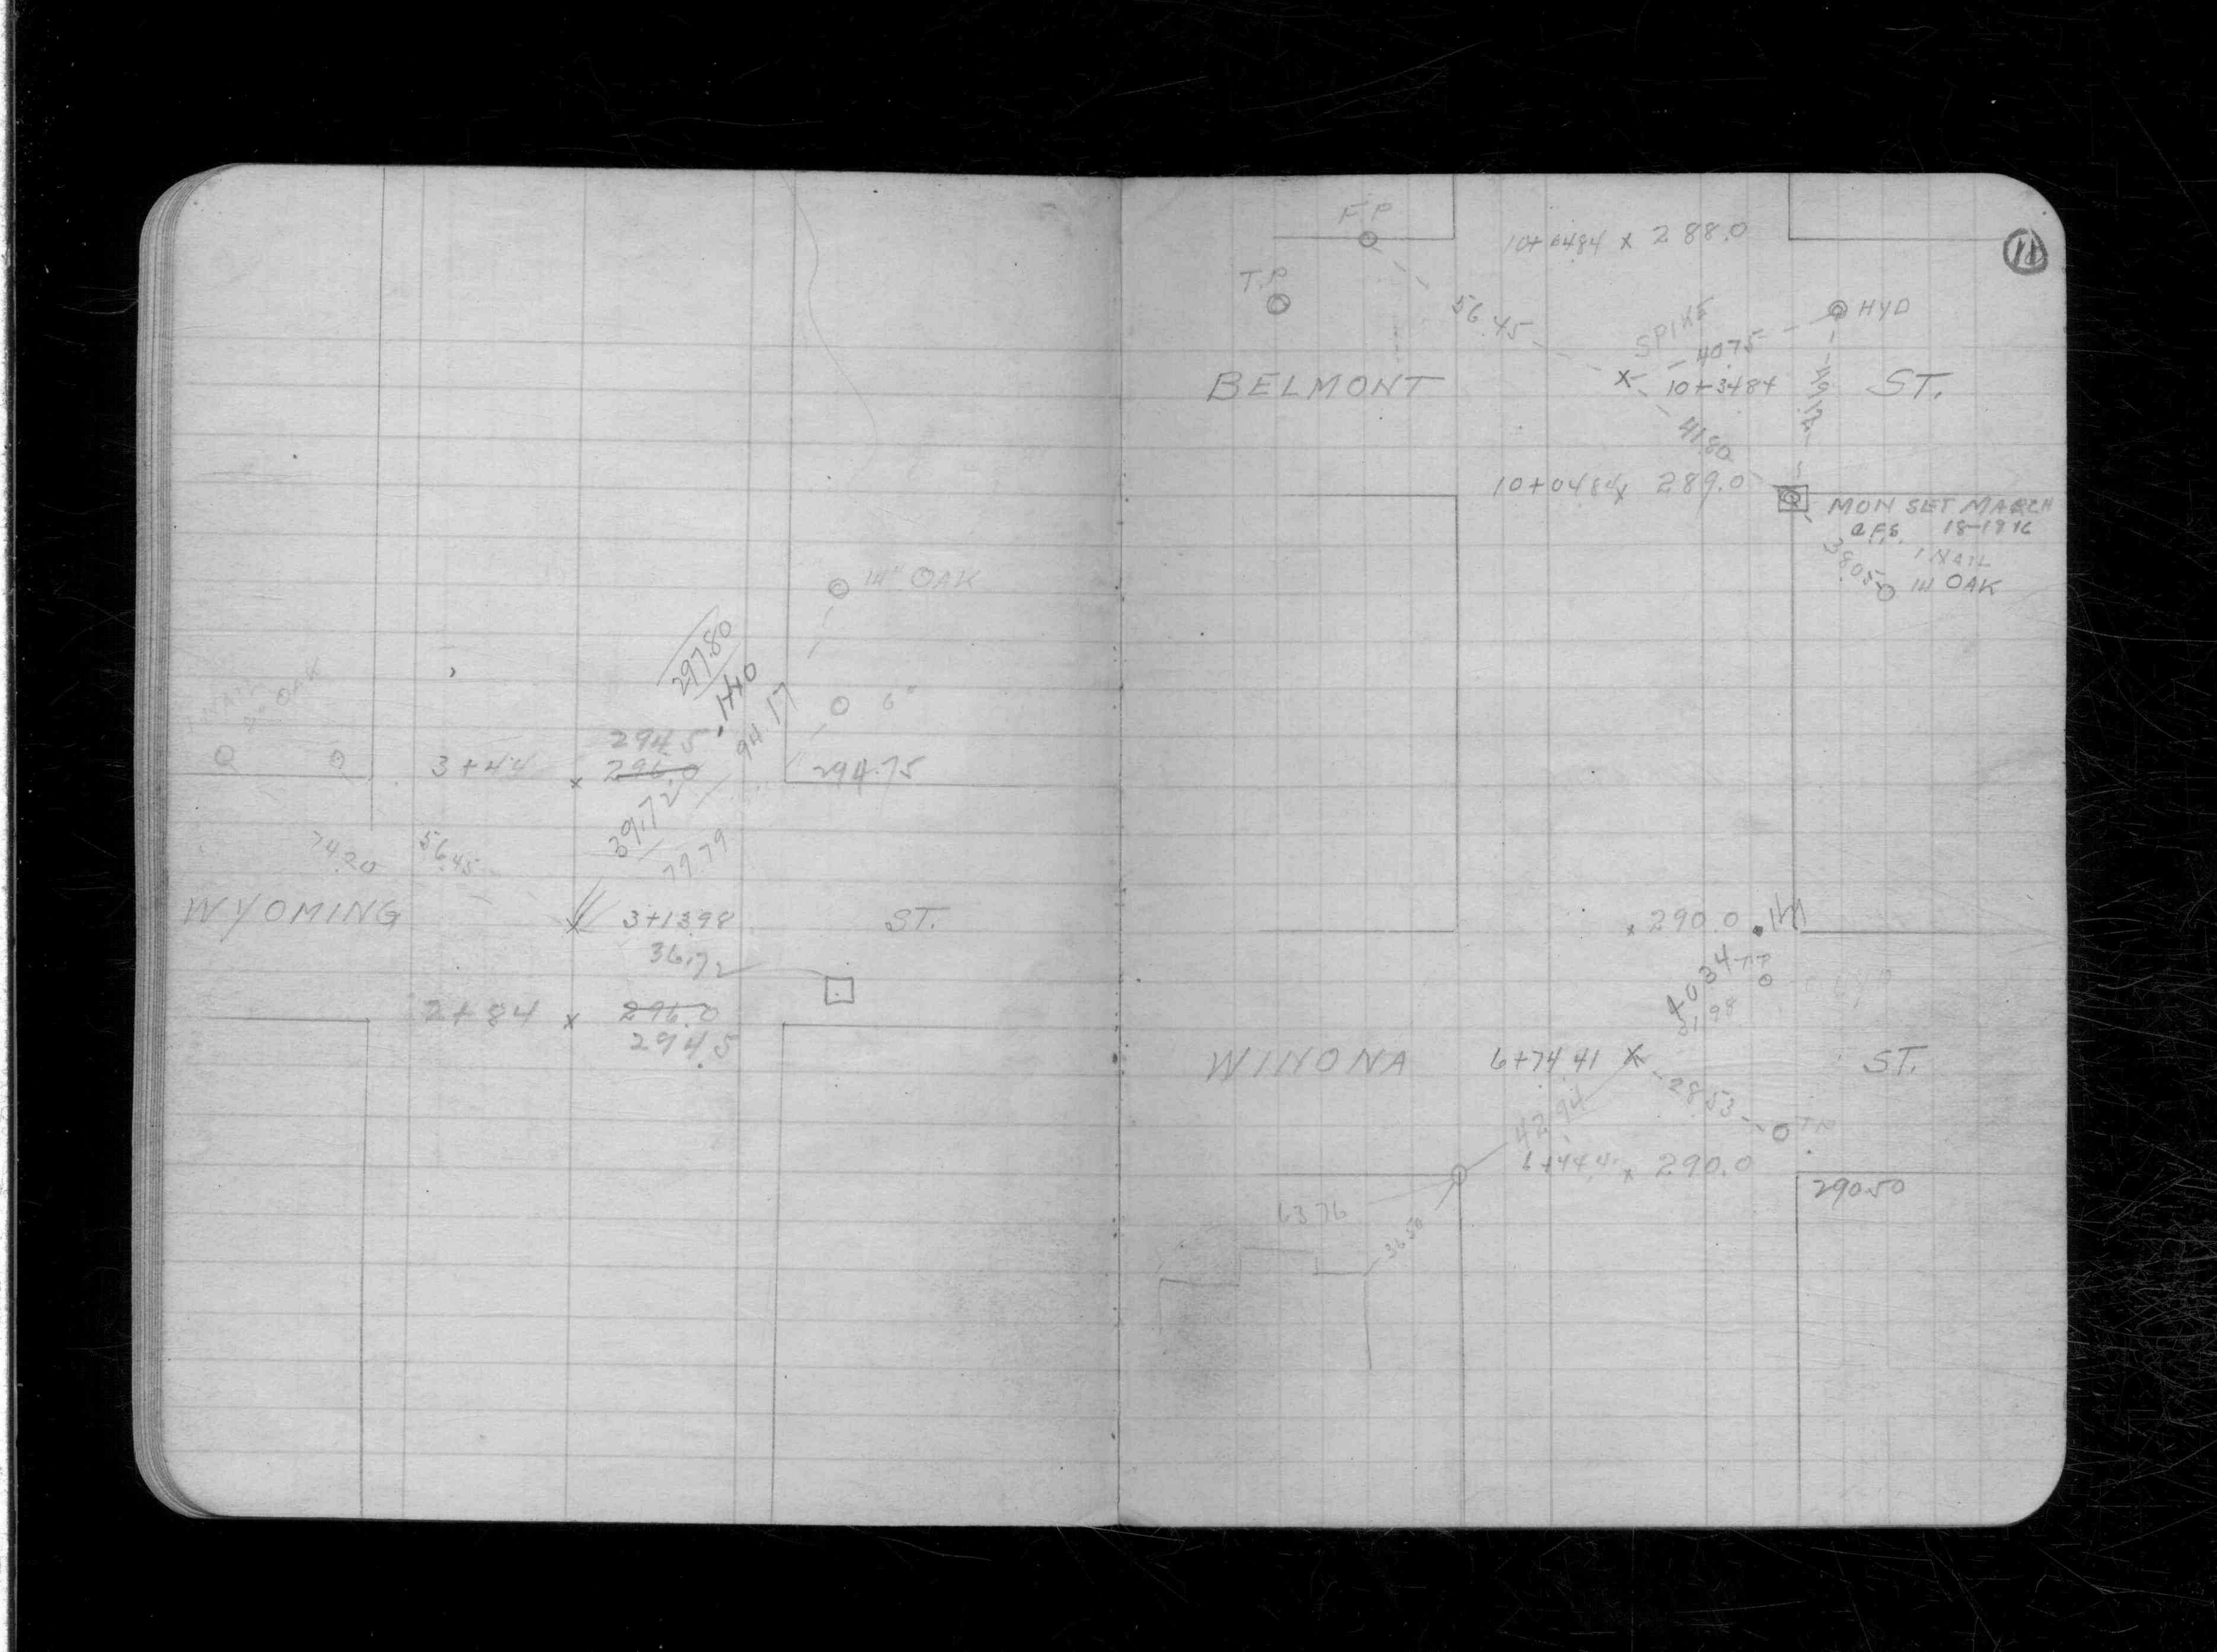 14" OAK
297.80
94.17
6"
294.5
3+44 x 296.0
294.75
39.72
79.79
74.20
56.45
WYOMING
3+13.98
ST.
36.72
2+84 x 296.0
294.5
11
F.P
10+6484 x 288.0
T.P
56.45
SPIKE
HYD
4075
BELMONT
x 10+3484
ST.
41.80
10+0484 x 289.0
MON SET MARCH
18-1916
1 NAIL
38.05
14 OAK
x 290.0
4034
T.P
WINONA
6+74 41 x
ST.
28 53
42 94
6+444 x 290.0
290.50
63 76
36 50